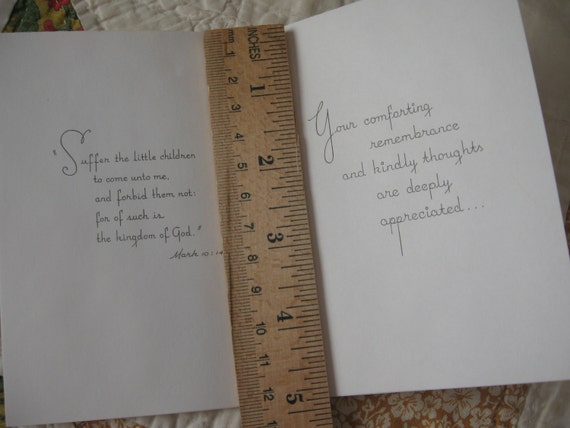 "Suffer the little children
to come unto me,
and forbid them not:
for of such is
the kingdom of God."
Mark 10:14
mm 1 2 3 4 5 6 7 8 9 10 11 12
INCHES 1 2 3 4 5
Your comforting
remembrance
and kindly thoughts
are deeply
appreciated...